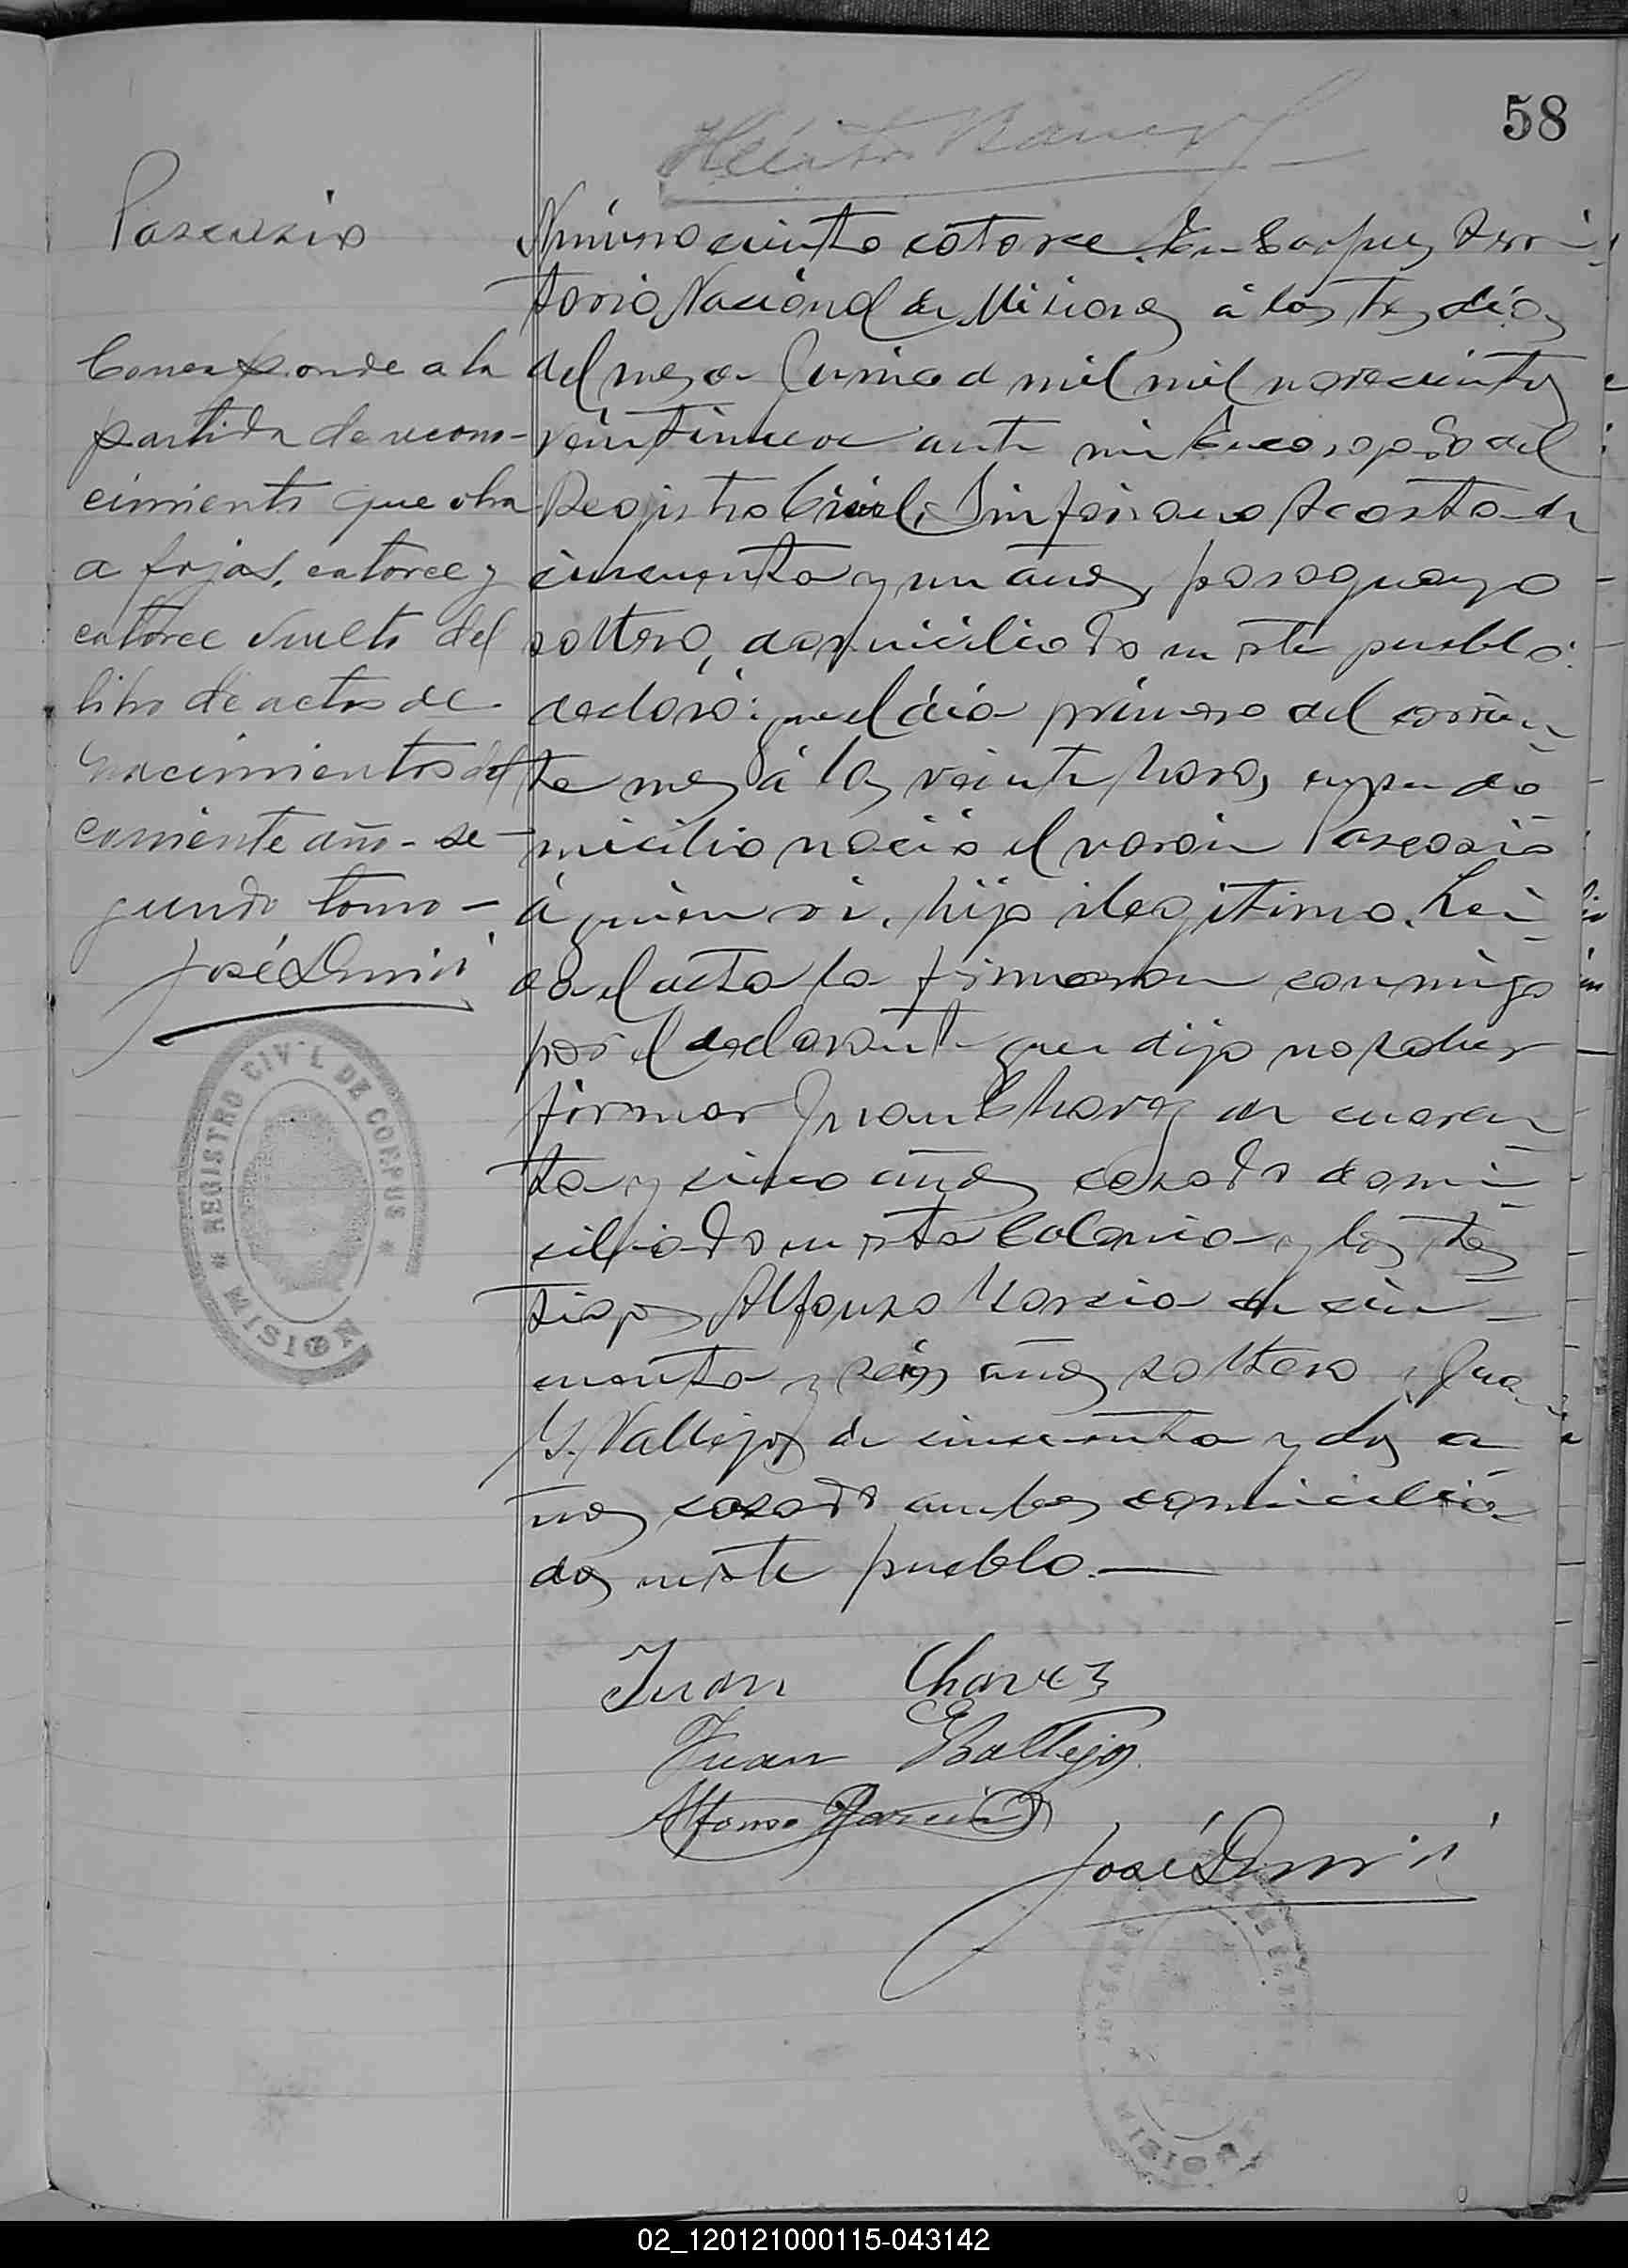 58
Pascasio
Corresponde a la
partida de recono-
cimiento que obra
a fojas, catorce y
catorce vuelto del
libro de actas de
nacimientos del
corriente año - se-
gundo tomo -
José
REGISTRO CIVIL DE CORPUS
MISIONES
Número ciento catorce. En Corpus, Terri-
torio Nacional de Misiones, á los tres dias
del mes de Junio de mil mil novecientos
veintinueve ante mi Encargado del
Registro Civil, Sinforiano Acosta de
cincuenta y un años, paraguayo
soltero, domiciliado en este pueblo:
declaró: que el dia primero del corrien-
te mes á las veinte horas, en su do-
micilio nació el varón Pascasio
á quien vi, hijo ilegitimo. Lei-
da el acta la firmaron conmigo
por el declarante que dijo no saber
firmar Juan Chavez de cuaren-
ta y cinco años casado domi-
ciliado en esta Colonia y los tes-
tigos Alfonso Garcia de cin-
cuenta y seis años soltero y Juan
G. Vallejos de cincuenta y dos a-
ños casado ambos domicilia-
dos en este pueblo.—
Juan Chavez
Juan G Ballejos
Alfonso Garcia
José
02_120121000115-043142